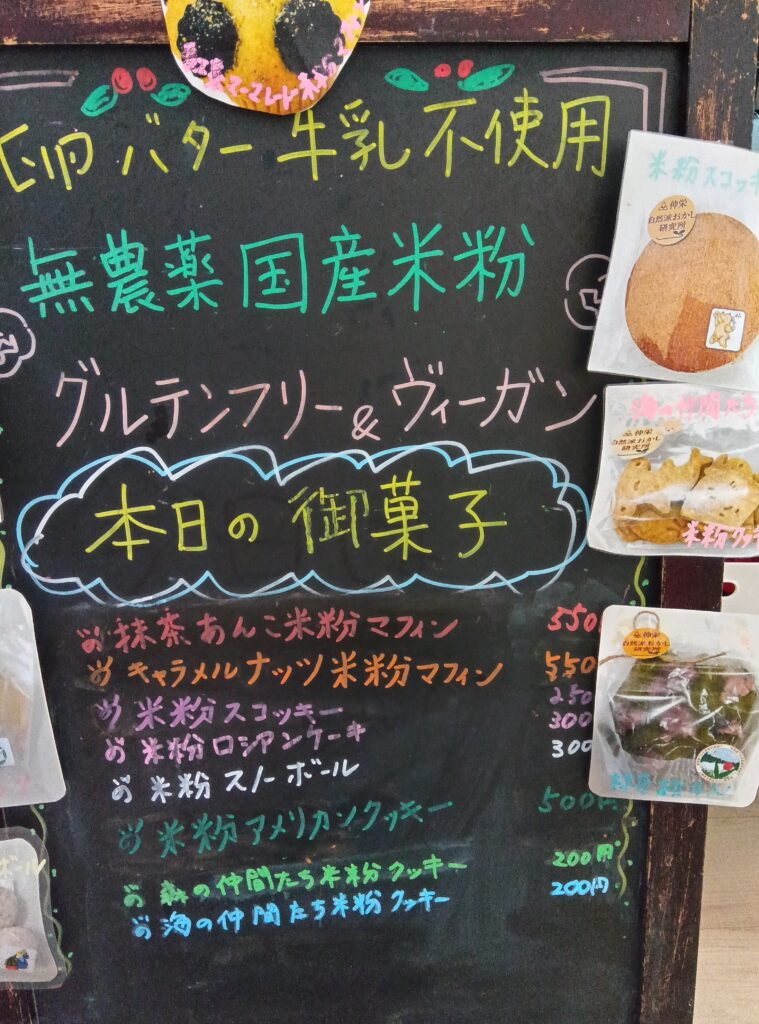 卵 バター 牛乳 不使用
無農薬 国産米粉
グルテンフリー&ヴィーガン
本日の 御菓子
抹茶あんこ米粉マフィン 550
キャラメルナッツ米粉マフィン 550
米粉スコッキー 250
米粉ロシアンケーキ 300
米粉スノーボール 300
米粉アメリカンクッキー 500円
森の仲間たち米粉クッキー 200円
海の仲間たち米粉クッキー 200円
米粉スコッキ
伸栄
自然派おかし
研究所
海の仲間たち
伸栄
自然派おかし
研究所
米粉クッキ
伸栄
自然派おかし
研究所
ボール